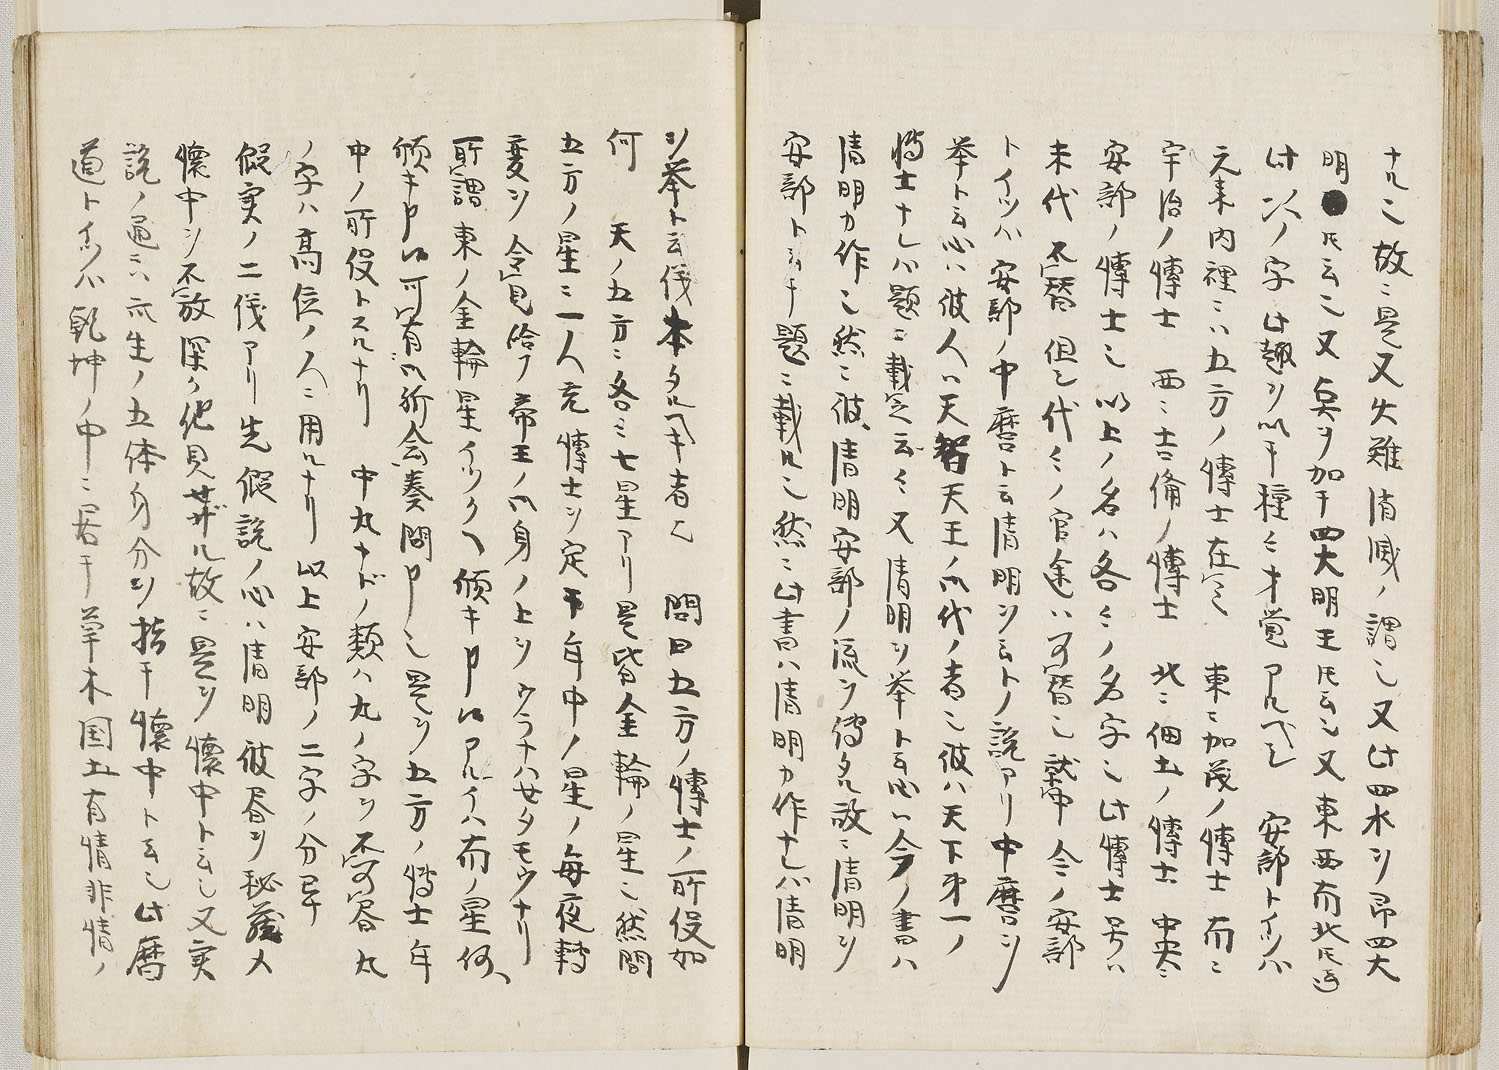 ナルニ故ニ是又火難消滅ノ謂也又此四水ヲ昂四大
明●トモ云也又員ヲ加テ四大明王トモ云也又東西南北トモ云
此以ノ字此趣ヲ以テ種々才覚アルヘシ　安部トイツハ
元来内裡ニハ五方ノ博士在之　東ニ加茂ノ博士　南ニ
宇治ノ博士　西ニ吉備ノ博士　北ニ佃土ノ博士　中央ニ
安部ノ博士也　以上ノ名ハ各々ノ名字也此博士号ハ
末代不替　但シ代々ノ官途ハ可替也就中　今ノ安部
トイツハ安部ノ中麿ト云清明ヲ云トノ説アリ中麿ヲ
挙ト云心ハ彼人ハ天智天王ノ御代ノ者也彼ハ天下第一ノ
博士ナレハ題ニ載之云々又清明ヲ挙ト云心ハ今ノ書ハ
清明カ作也然ニ彼清明安部ノ流ヲ傳タル故ニ清明ヲ
安部ト云テ題ニ載ル也然ニ此書ハ清明カ作ナレハ清明
ヲ挙ト云儀本タルヘキ者也　問曰五方ノ博士ノ所役如
何　天ノ五方ニ各ニ七星アリ是皆金輪ノ星也然間
五方ノ星ニ一人充博士ヲ定テ年中ノ星ノ毎夜轉
変ヲ令覧給フ帝王ノ御身ノ上ヲウラナハせタモウナリ
所謂東ノ金輪星イツクヘ傾キ申候アルイハ南ノ星何
傾キ申候可有御祈会奏問申也是ヲ五方ノ博士年
中ノ所役トスルナリ　中丸ナドノ類ハ丸ノ字ヲ不可容丸
ノ字ハ高位ノ人ニ用ルナリ　以上安部ノ二字ノ分畢
假実ノ二儀アリ先假説ノ心ハ清明彼書ヲ秘蔵メ
懐中シ不放深ク他見せザル故ニ是ヲ懐中ト云也又実
説ノ通ニハ示生ノ五体身分ヲ指テ懐中ト云也此暦
道トイツハ乾坤ノ中ニ居テ草木国土有情非情ノ